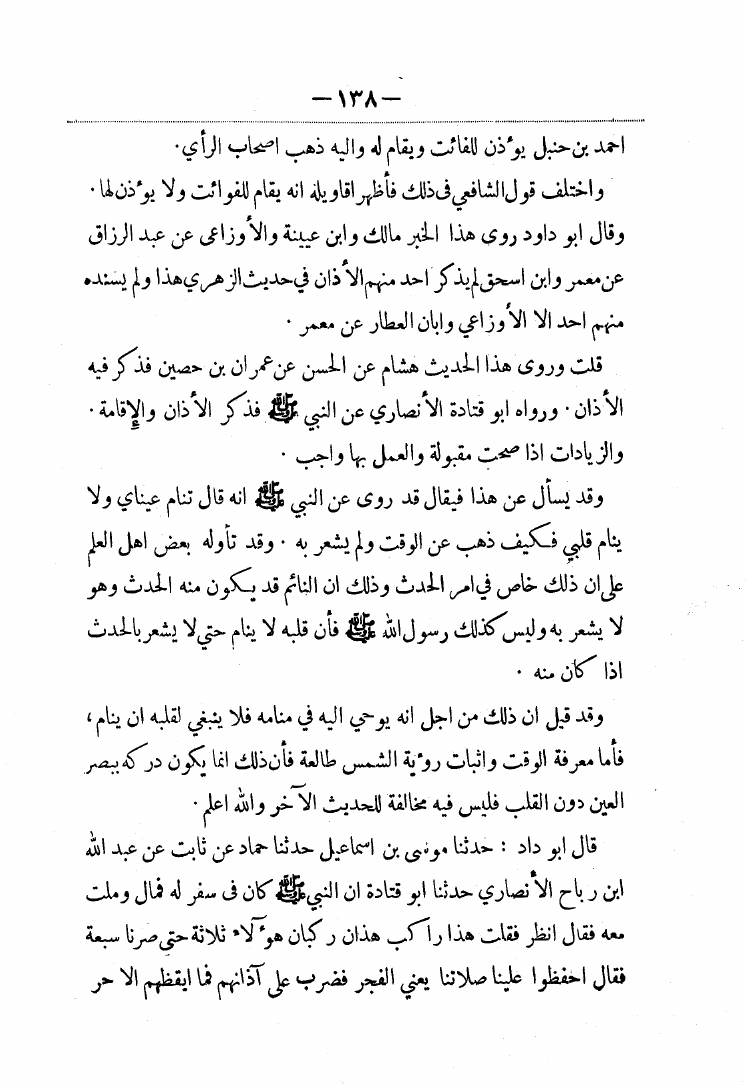 — ١٣٨ —
احمد بن حنبل يوٴذن للفائت ويقام له واليه ذهب اصحاب الرأي .
واختلف قول الشافعي فى ذلك فأظهر اقاويله انه يقام للفوائت ولا يوٴذن لها .
وقال ابو داود روى هذا الخبر مالك وابن عيينة والأوزاعى عن عبد الرزاق
عن معمر وابن اسحق لم يذكر احد منهم الأذان في حديث الزهري هذا ولم يسنده
منهم احد الا الأوزاعي وابان العطار عن معمر .
قلت وروى هذا الحديث هشام عن الحسن عن عمران بن حصين فذكر فيه
الأذان . ورواه ابو قتادة الأنصاري عن النبي ﷺ فذكر الأذان والإقامة .
والزيادات اذا صحت مقبولة والعمل بها واجب .
وقد يسأل عن هذا فيقال قد روى عن النبي ﷺ انه قال تنام عيناي ولا
ينام قلبي فكيف ذهب عن الوقت ولم يشعر به . وقد تأوله بعض اهل العلم
على ان ذلك خاص في امر الحدث وذلك ان النائم قد يكون منه الحدث وهو
لا يشعر به وليس كذلك رسول الله ﷺ فأن قلبه لا ينام حتي لا يشعر بالحدث
اذا كان منه .
وقد قيل ان ذلك من اجل انه يوحي اليه في منامه فلا ينبغي لقلبه ان ينام ،
فأما معرفة الوقت واثبات روٴية الشمس طالعة فأن ذلك انما يكون دركه ببصر
العين دون القلب فليس فيه مخالفة للحديث الآخر والله اعلم .
قال ابو داد : حدثنا موسى بن اسماعيل حدثنا حماد عن ثابت عن عبد الله
ابن رباح الأنصاري حدثنا ابو قتادة ان النبي ﷺ كان فى سفر له فمال وملت
معه فقال انظر فقلت هذا راكب هذان ركبان هوٴلاء ثلاثة حتى صرنا سبعة
فقال احفظوا علينا صلاتنا يعني الفجر فضرب على آذانهم فما ايقظهم الا حر